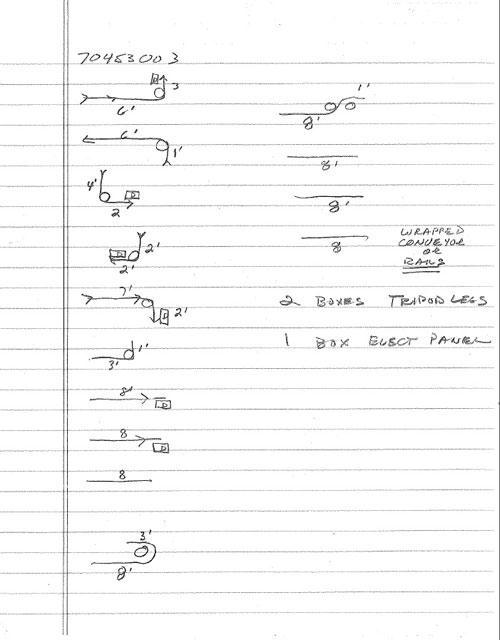 70453003
D
3
6'
6'
1'
4'
D
2
D
2'
2'
7'
D
2'
1'
3'
8'
D
8
D
8
3'
8'
1'
8'
8'
8'
8
WRAPPED
CONVEYOR
OR
RAILS
2 BOXES TRIPOD LEGS
1 BOX ELECT PANEL